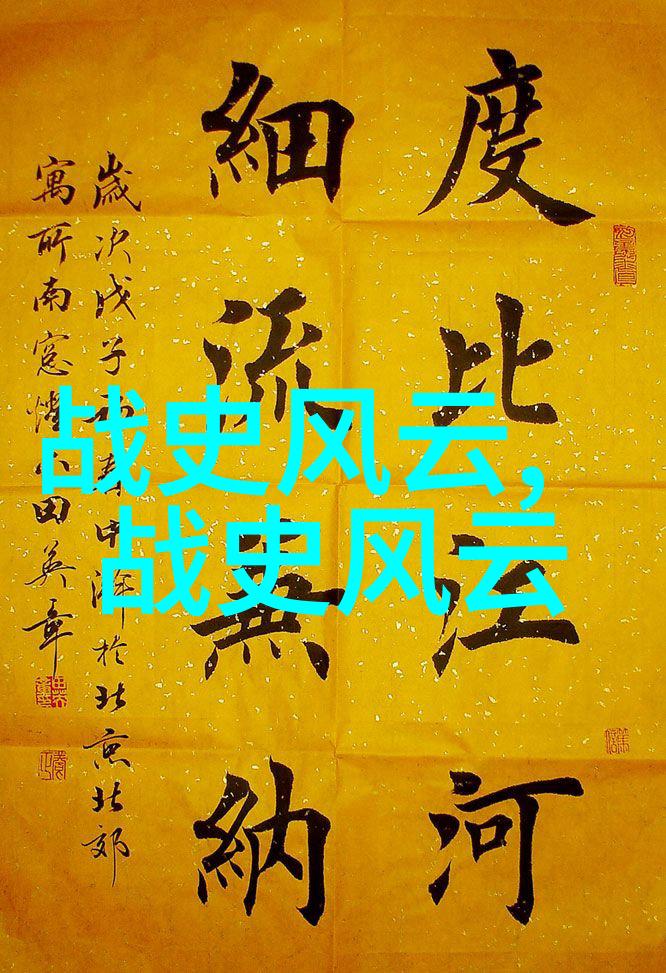 度比江河
細流無納
歲次戊子春中澣於北京北郊
寓所南窓田英章
战史风云,
战史风云